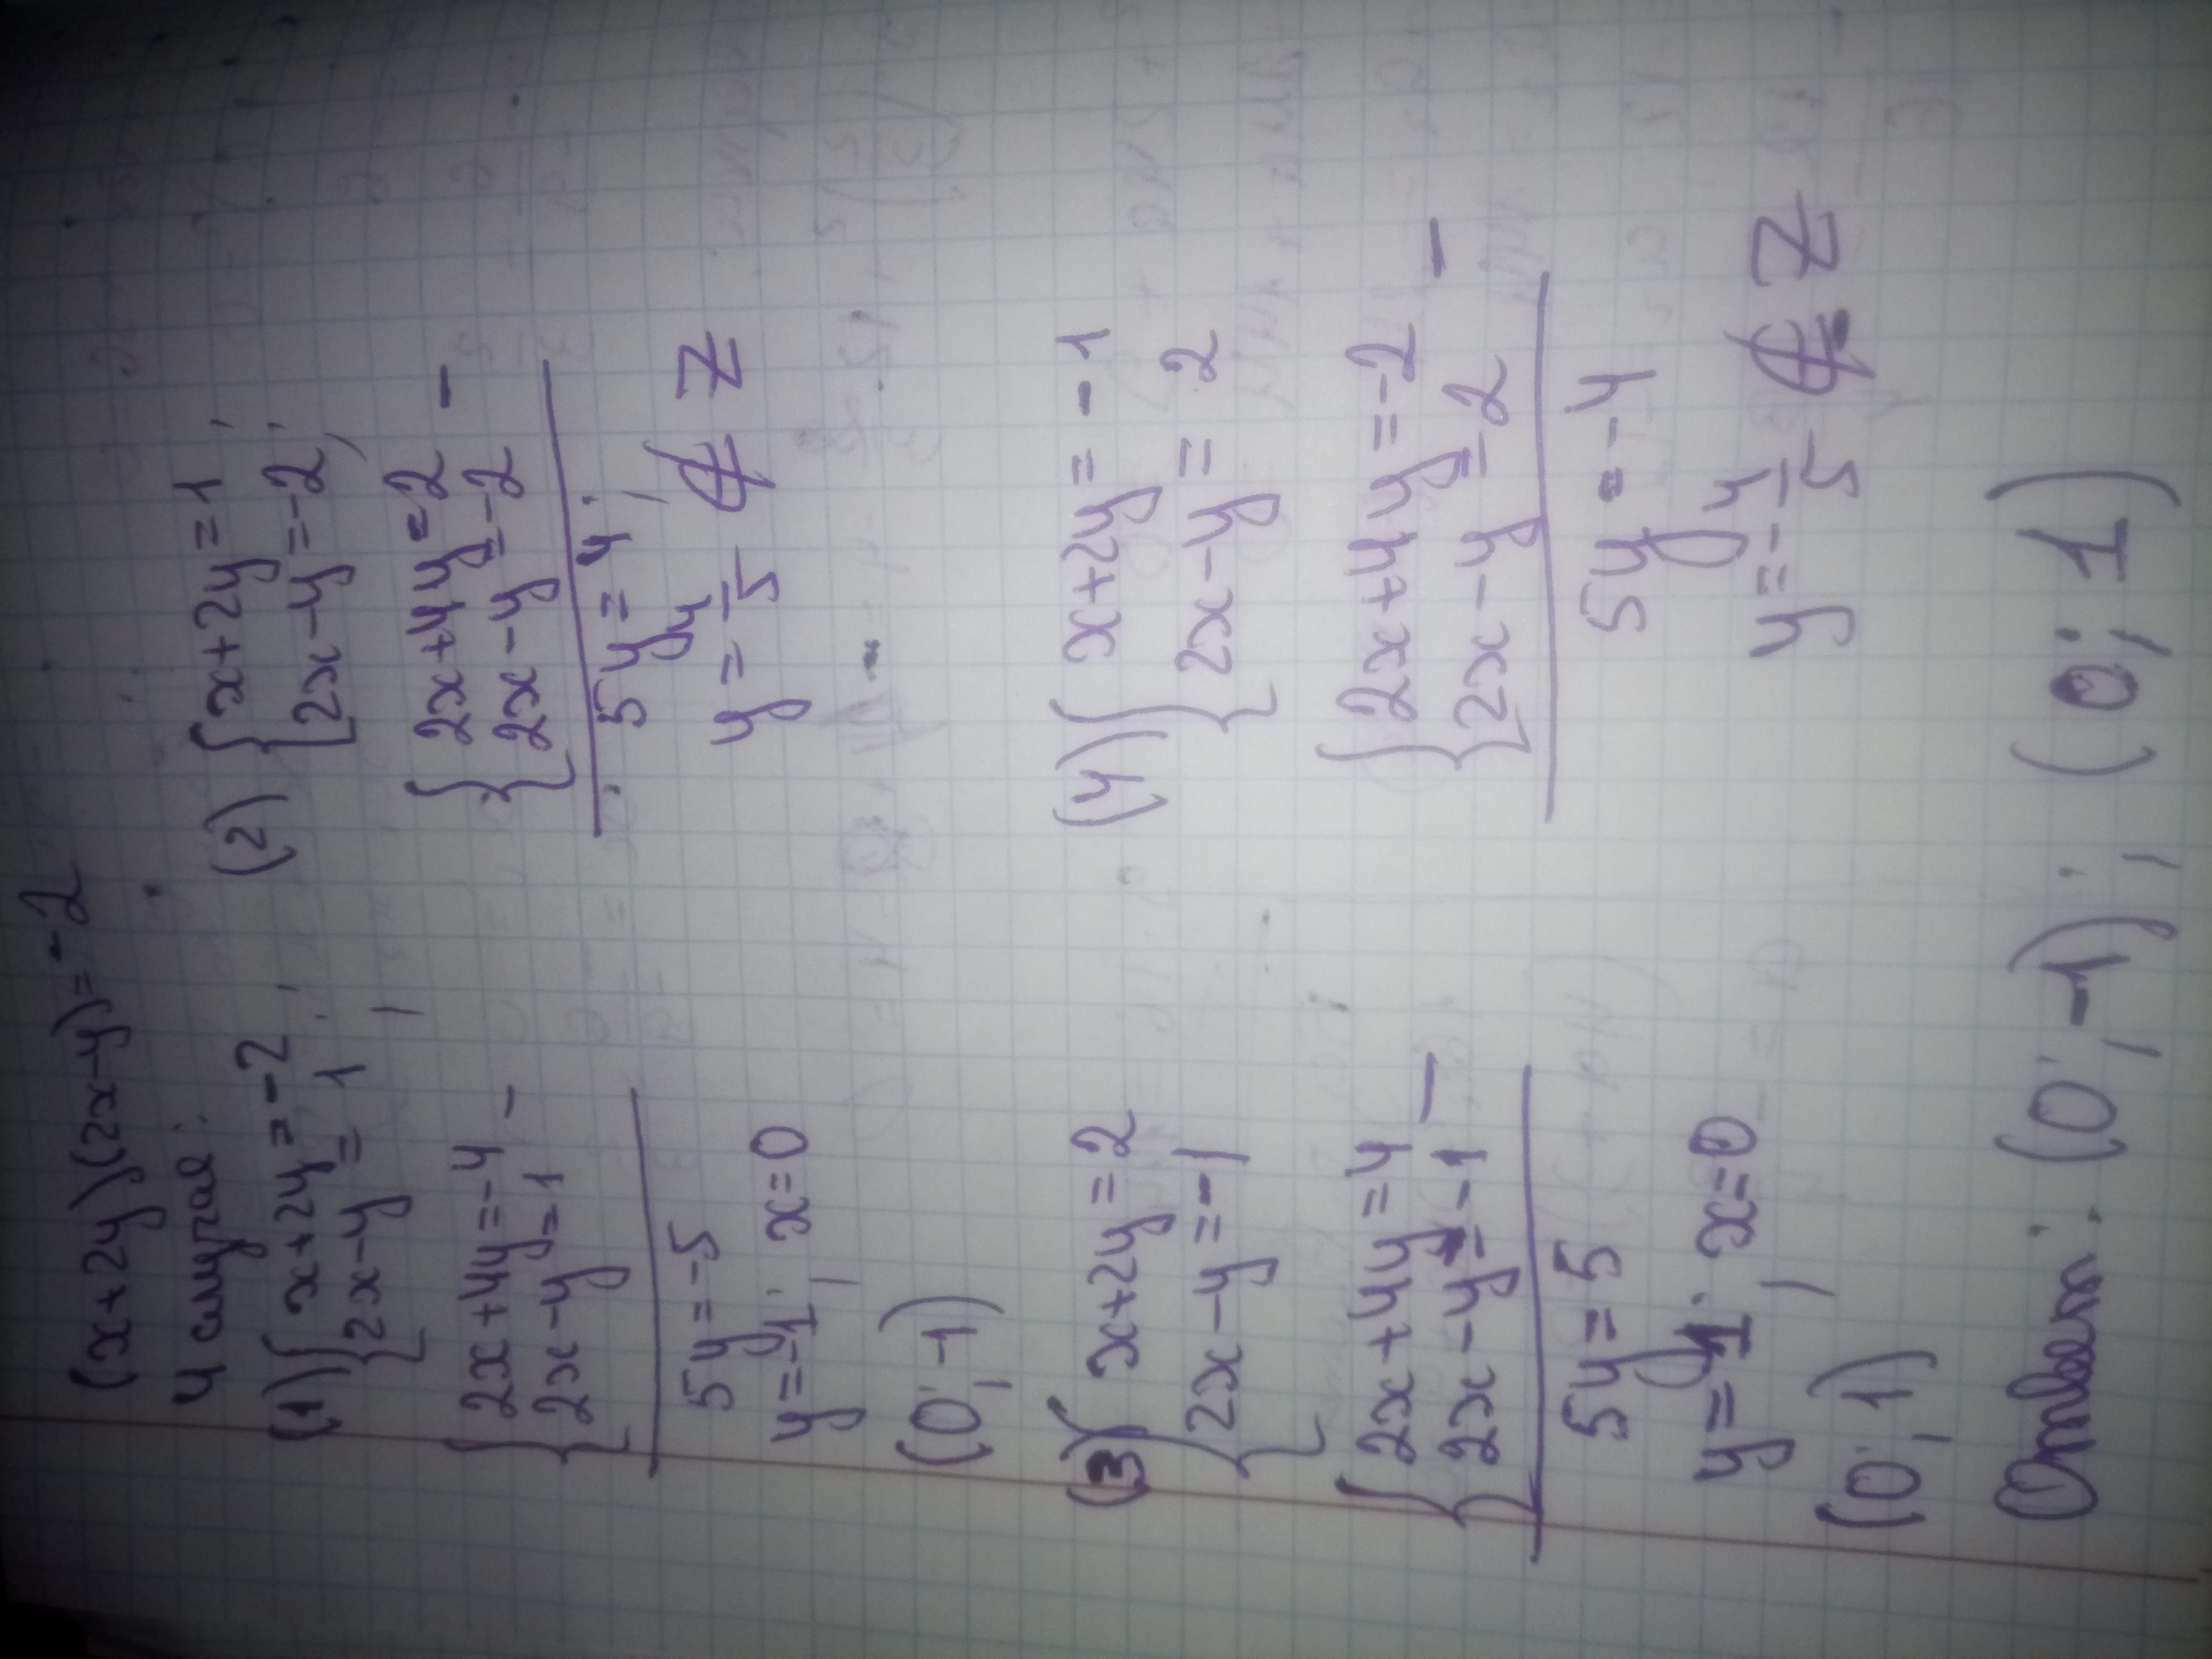 (x+2y)(2x-y)=-2
4 случая:
(1) { x+2y=-2
2x-y=1;
{ 2x+4y=-4 -
2x-y=1
5y=-5
y=-1; x=0
(0;-1)
(2) { x+2y=1
2x-y=-2;
{ 2x+4y=2 -
2x-y=-2
5y=4;
y=4/5 ∉ Z
(3) { x+2y=2
2x-y=-1
{ 2x+4y=4 -
2x-y=-1
5y=5
y=1; x=0
(0;1)
(4) { x+2y=-1
2x-y=2
{ 2x+4y=-2 -
2x-y=2
5y=-4
y=-4/5 ∉ Z
Ответ: (0;-1); (0;1)